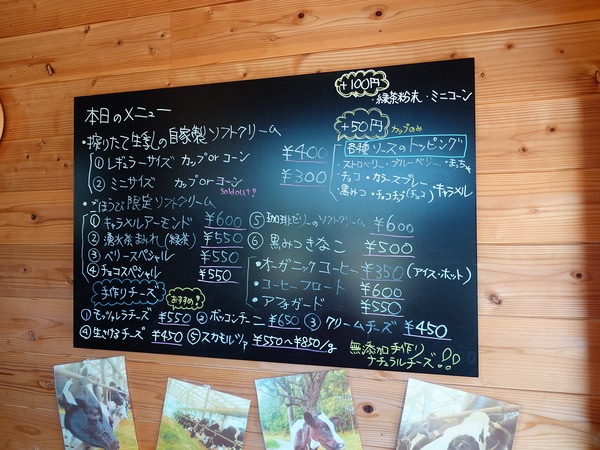 本日のメニュー
・搾りたて生乳の自家製ソフトクリーム
① レギュラーサイズ カップorコーン ¥400
② ミニサイズ カップorコーン ¥300
Soldout
・ごほうび限定ソフトクリーム
① キャラメルアーモンド ¥600
② 湧水茶まみれ(緑茶) ¥550
③ ベリースペシャル ¥550
④ チョコスペシャル ¥550
⑤ 珈琲ゼリーのソフトクリーム ¥600
⑥ 黒みつきなこ ¥500
・オーガニックコーヒー ¥350 (アイス・ホット)
・コーヒーフロート ¥600
・アフォガード ¥550
+100円
・緑茶粉末・ミニコーン
+50円 カップのみ
各種ソースのトッピング
・ストロベリー・ブルーベリー・まっちゃ
・チョコ・カラースプレー
・黒みつ・チョコチップ(チョコ)・キャラメル
手作りチーズ おすすめ!
① モッツァレラチーズ ¥550 ② ボッコンチーニ ¥650 ③ クリームチーズ ¥450
④ 生さけるチーズ ¥450 ⑤ スカモルツァ ¥550〜¥850/g
無添加手作り
ナチュラルチーズ!!